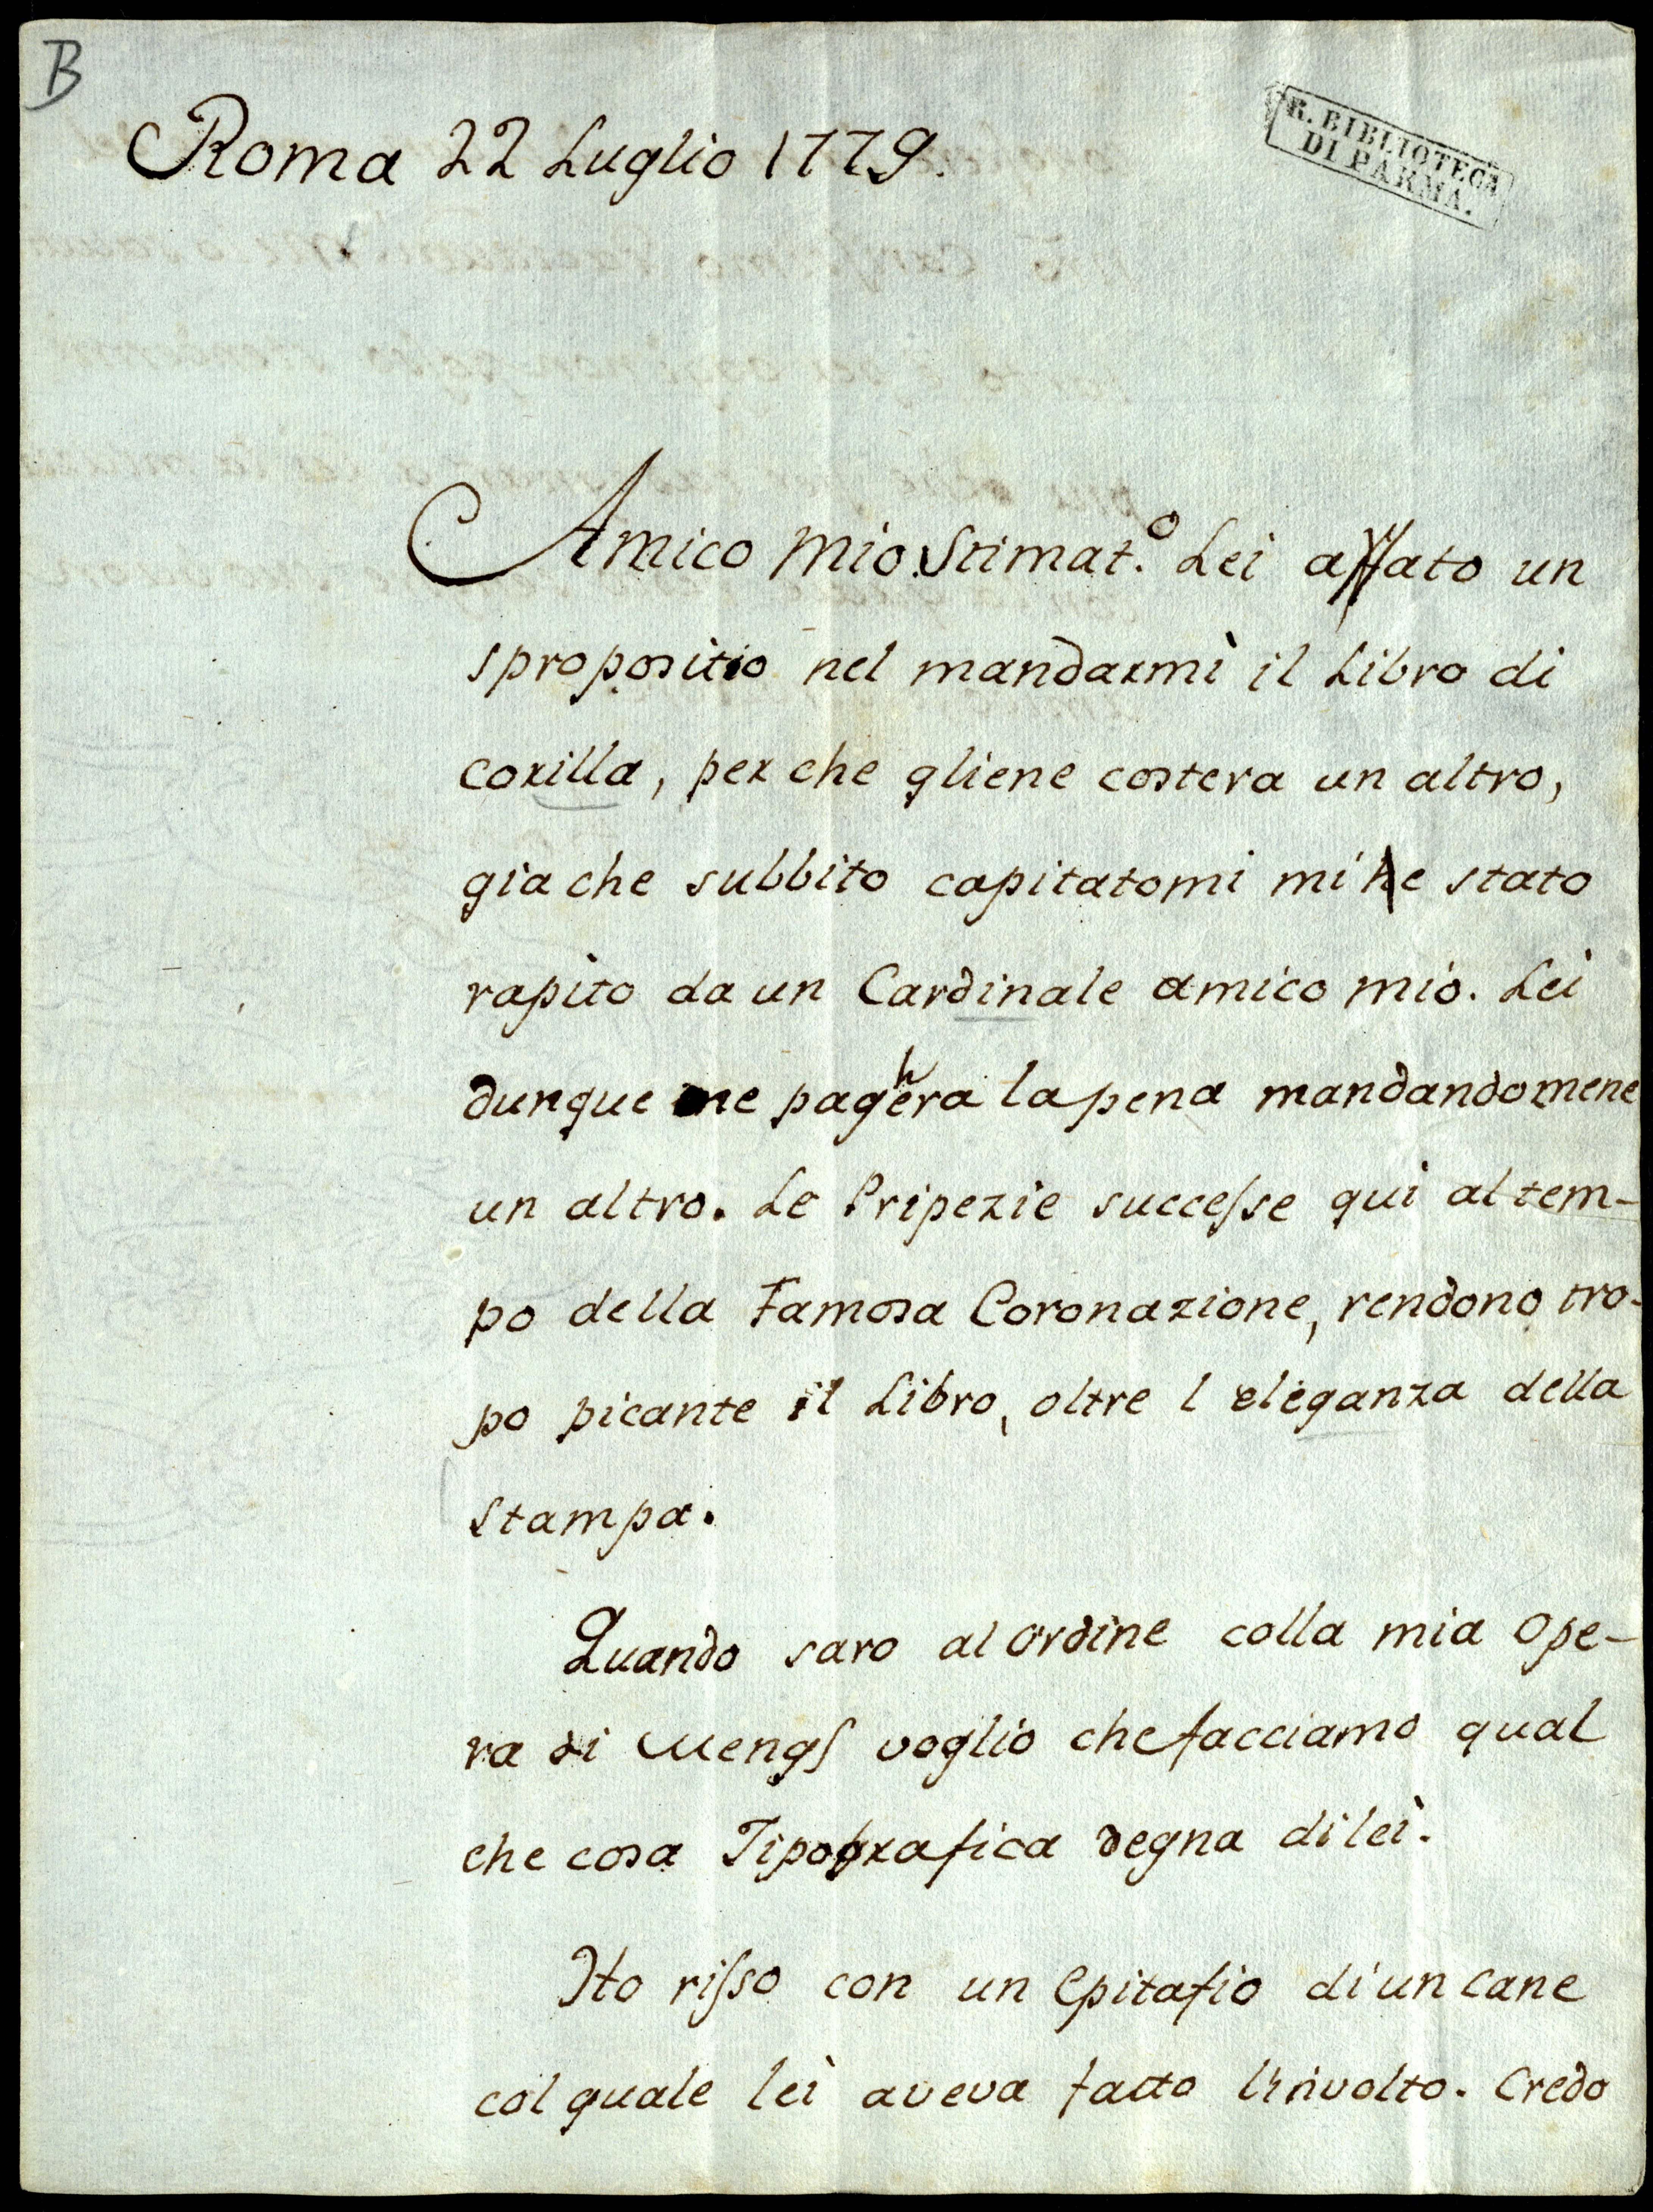 B
Roma 22 Luglio 1779.
R. BIBLIOTECA
DI PARMA.
Amico Mio Stimat.º Lei affato un
spropositio nel mandarmi il Libro di
corilla, per che gliene costera un altro,
gia che subbito capitatomi mi he stato
rapito da un Cardinale amico mio. Lei
dunque me paghera la pena mandandomene
un altro. Le Pripezie successe qui al tem-
po della Famosa Coronazione, rendono tro-
po picante il Libro, oltre l eleganza della
stampa.
Quando saro al ordine colla mia Ope-
ra di Mengs voglio che facciamo qual
che cosa Tipografica degna di lei.
Ho risso con un Epitafio di un cane
col quale lei aveva fatto l'involto. Credo